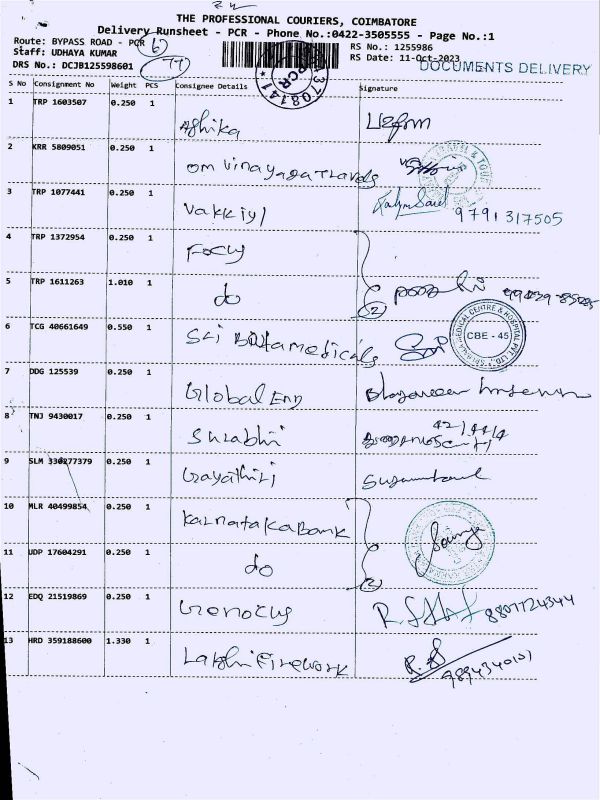 THE PROFESSIONAL COURIERS, COIMBATORE
Delivery Runsheet - PCR - Phone No.:0422-3505555 - Page No.:1
Route: BYPASS ROAD - PCR 6
RS No.: 1255986
Staff: UDHAYA KUMAR
RS Date: 11-Oct-2023
DRS No.: DCJB125598601
DOCUMENTS DELIVERY
PCR
S No Consignment No Weight PCS Consignee Details Signature
1 TRP 1603507 0.250 1
Ashika
2 KRR 5809051 0.250 1
om vinayaga Travels
3 TRP 1077441 0.250 1
Vakkiyl
9791317505
4 TRP 1372954 0.250 1
Focus
5 TRP 1611263 1.010 1
do
2
6 TCG 40661649 0.550 1
Sri Batamedicals
CBE - 45
7 DDG 125539 0.250 1
Global Eng
8 TNJ 9430017 0.250 1
Surabhi
9 SLM 330277379 0.250 1
Gayathiri
10 MLR 40499854 0.250 1
Karnataka Bank
11 UDP 17604291 0.250 1
do
2
12 EDQ 21519869 0.250 1
Genocus
8807724344
13 HRD 359188600 1.330 1
Lakshmi Firework
R.S